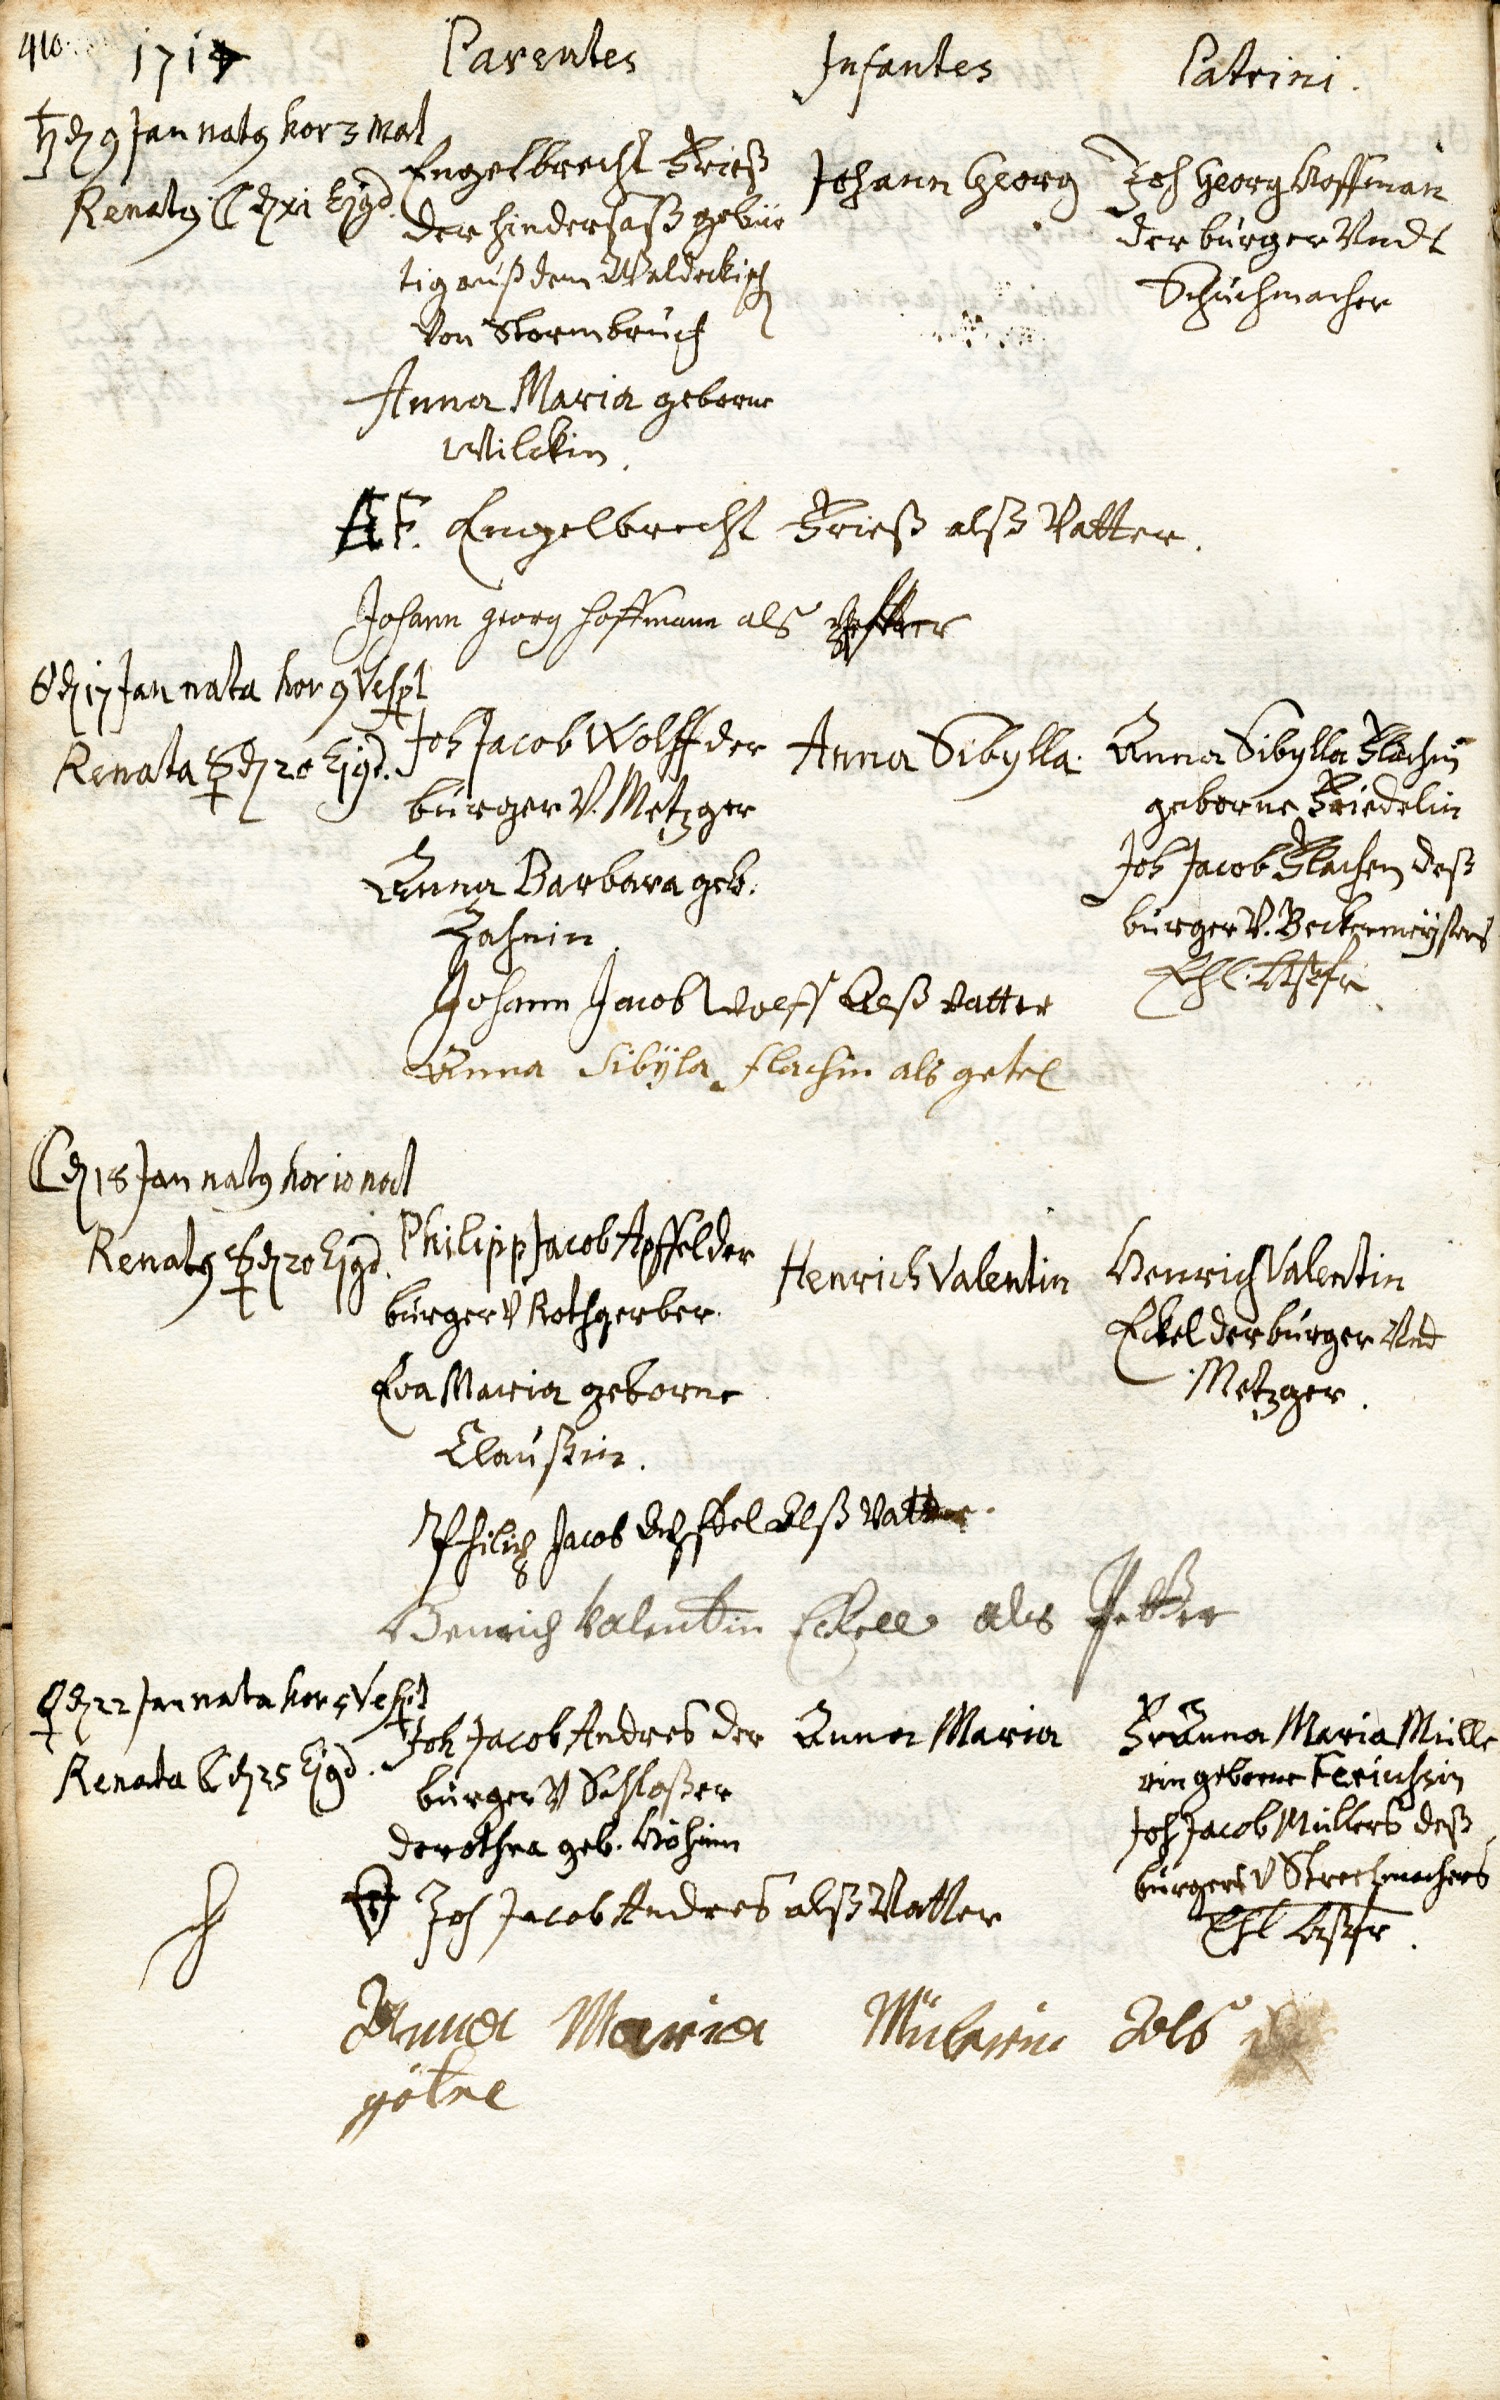 410.
1714
Parentes
Infantes
Patrini.
♄ d 9 Jan natq hor 3 mat
Renatq ☾ d xi Ejqd.
Engelbrecht Frieß
der hindersaß gebür
tig auß dem Waldeckisch
Von Stormbruch
Anna Maria geborne
Wilckin.
Johann Georg
Joh Georg Hoffman
der burger Vndt
Schuchmacher
E F. Engelbrecht Frieß alß Vatter.
Johann georg Hoffmann als
d 17 Jan nata hor 9 Vespt
Renata ☿ d 20 Ejqd.
Joh Jacob Wolff der
burger V. Metzger
Anna Barbara geb.
Zahnin.
Anna Sibylla.
Anna Sibylla Flachin
geborne Friedelin
Joh Jacob Flachen deß
burger V. Beckermeysters
Ehl.
Johann Jacob Wolff Alß vatter
Anna Sibÿla flachin als getel
☾ d 18 Jan natq hor 10 noct
Renatq ☿ d 20 Ejqd.
Philipp Jacob Apffel der
burger V Rothgerber.
Eva Maria geborne
Claußin.
Henrich Valentin
Henrich Valentin
Eckel der burger Vnd
Metzger.
Philip Jacob Apffel Alß Vatter.
Henrich Valentin Eckell als Petter
♀ d 22 Jan nata hor 5 Vespt
Renata ☾ d 25 Ejqd.
Joh Jacob Andres der
burger V Schloßer
Dorothea geb. Höhnin
Anna Maria
Fr Anna Maria Mülle
rin geborne
Joh Jacob Müllers deß
burgers V Strechmachers
Ehl
Joh Jacob Andres alß Vatter
Anna Maria Mülerin Als
götel